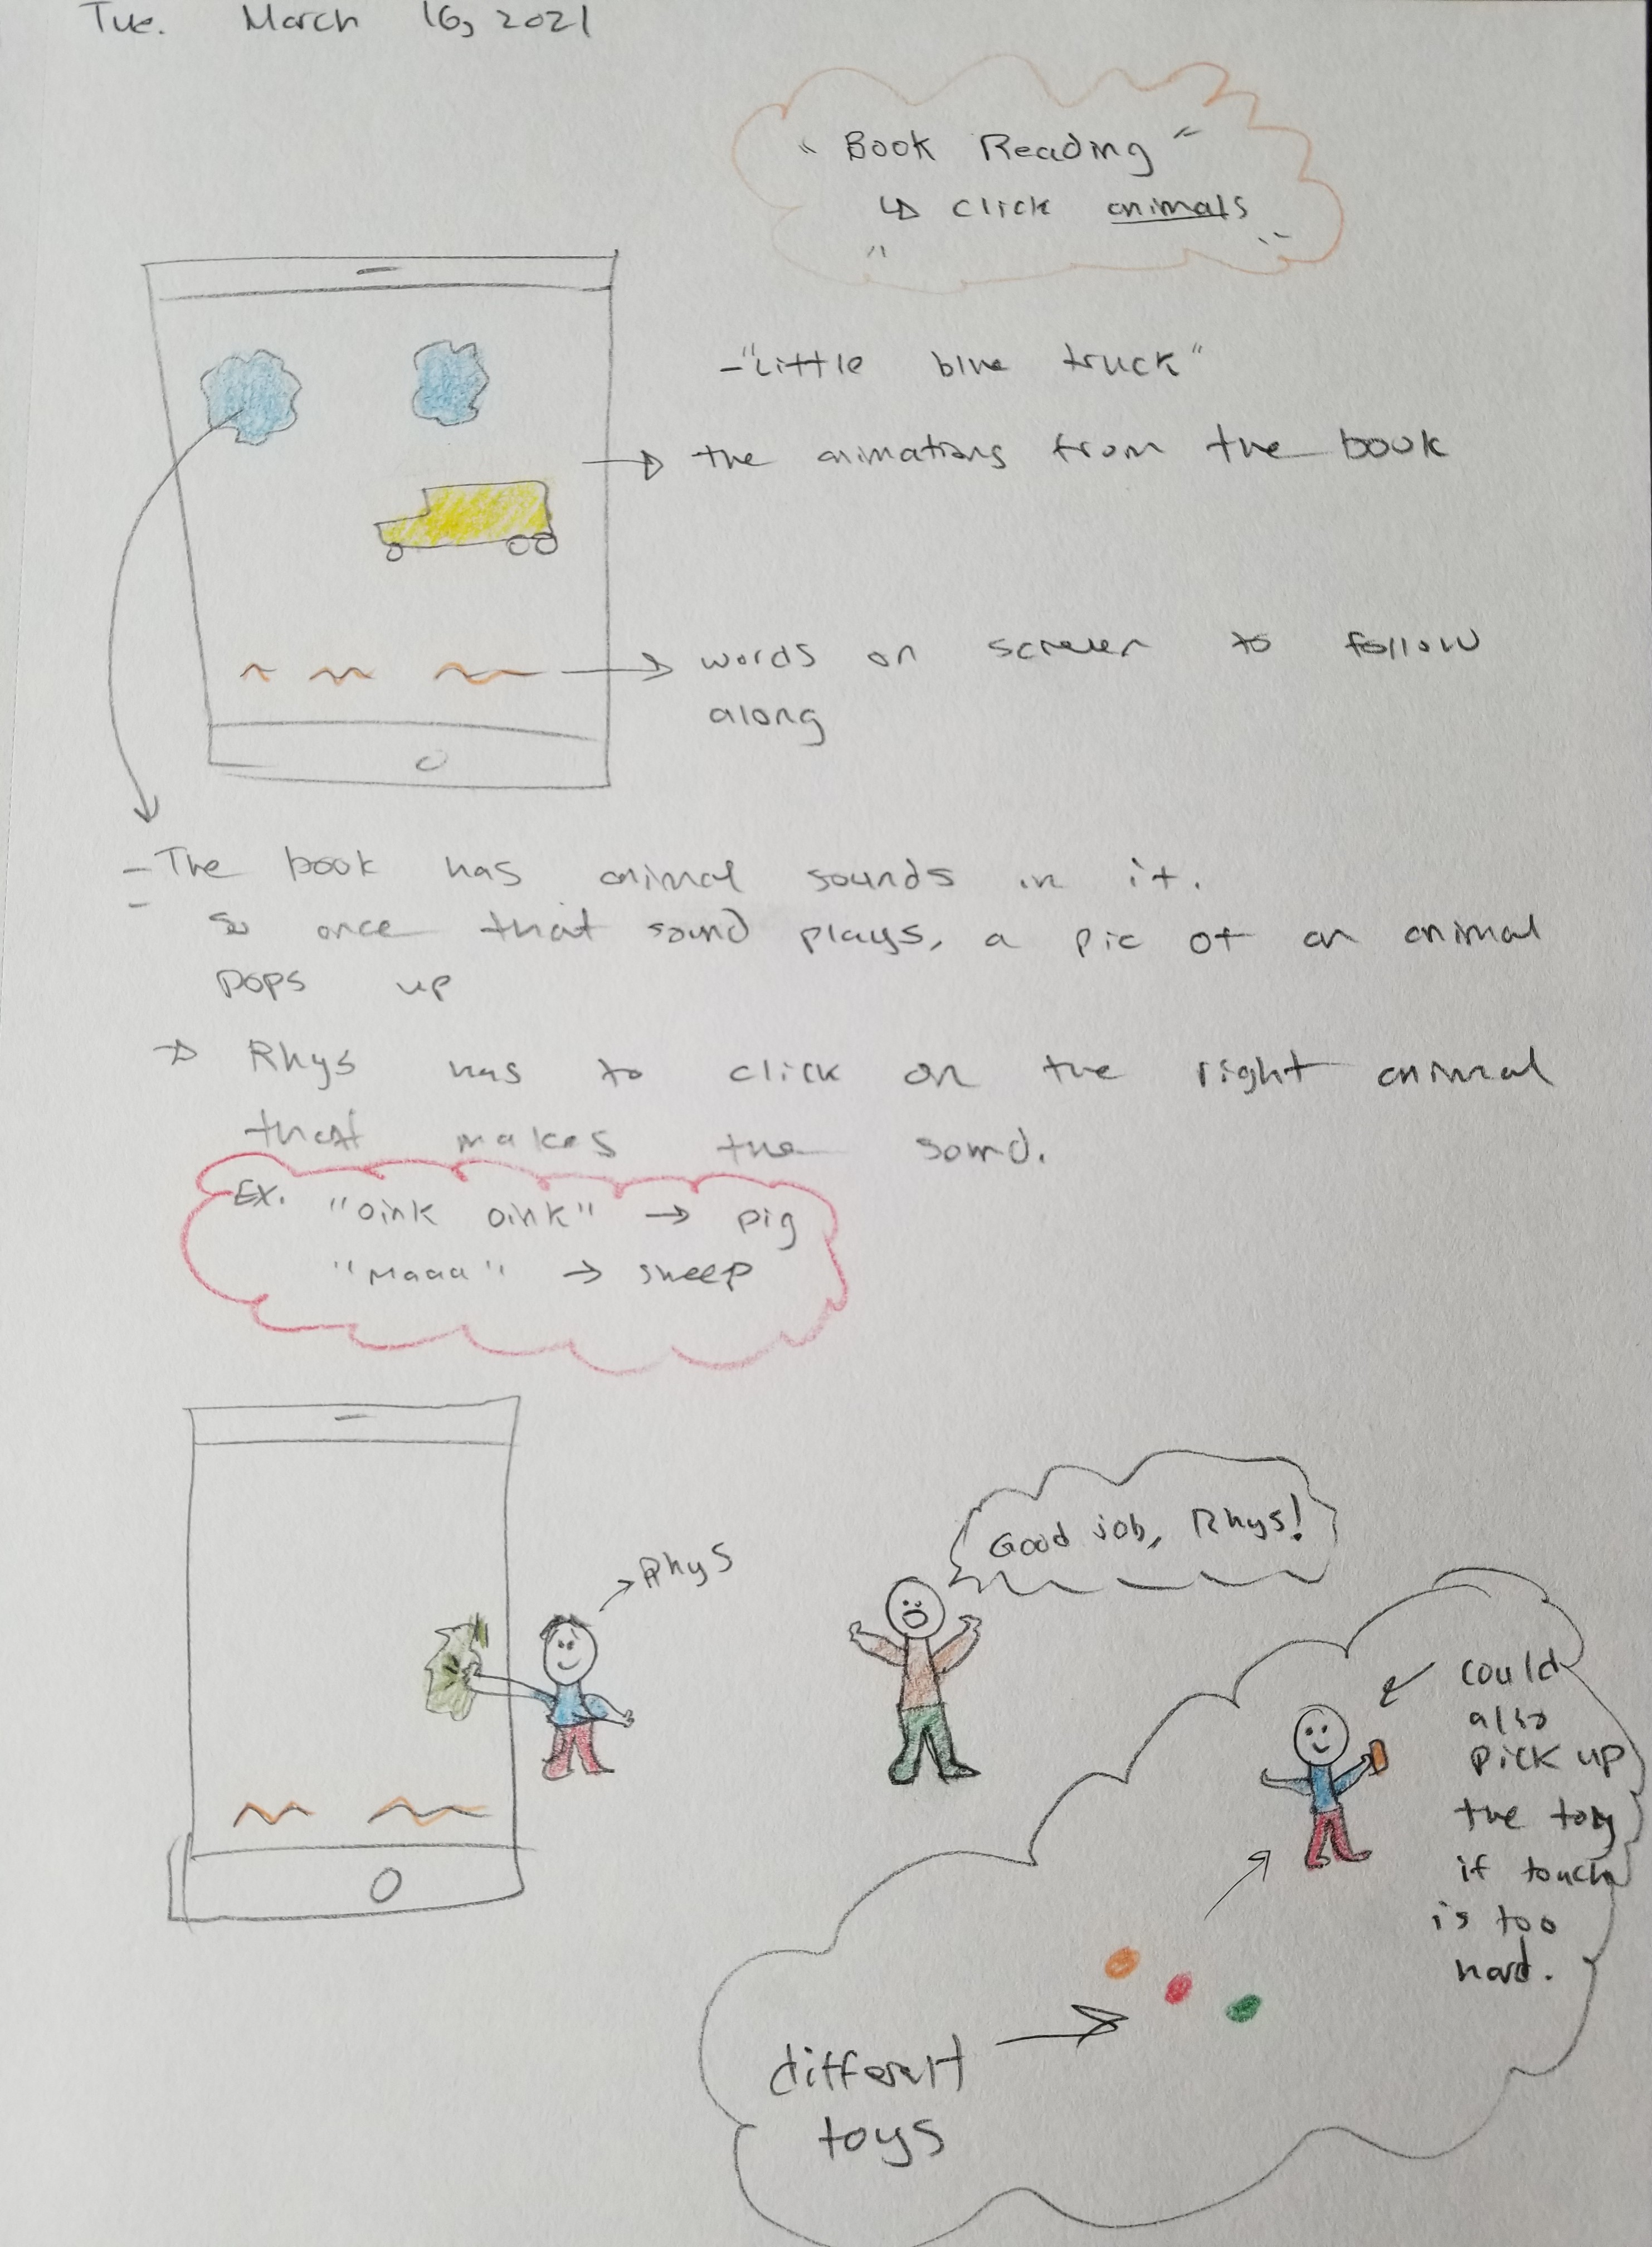 Tue. March 16, 2021
"Book Reading"
↳ click animals
" "
- "Little blue truck"
→ the animations from the book
→ words on screen to follow
along
- The book has animal sounds in it.
- So once that sound plays, a pic of an animal
pops up
→ Rhys has to click on the right animal
that makes the sound.
Ex. "oink oink" → pig
"Maaa" → sheep
→ Rhys
Good job, Rhys!
could
also
pick up
the toy
if touch
is too
hard.
different
toys